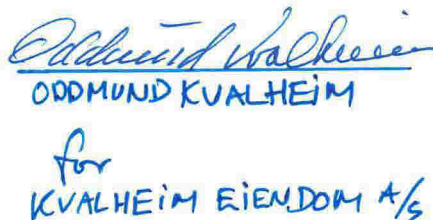 Oddmund Kvalheim
ODDMUND KVALHEIM
for
KVALHEIM EIENDOM A/S